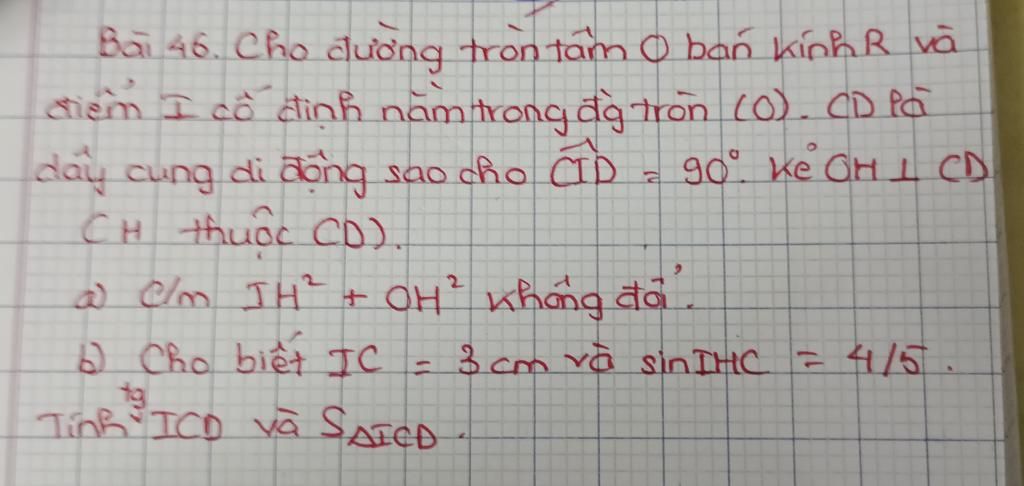 Bài 46. Cho đường tròn tâm O bán kính R và
điểm I cố định nằm trong đg tròn (O). CD là
dây cung di động sao cho CID = 90°. Kẻ OH ⊥ CD
(H thuộc CD).
a) C/m IH² + OH² không đổi.
b) Cho biết IC = 3 cm và sin IHC = 4/5.
Tính tg ICD và S△ICD.